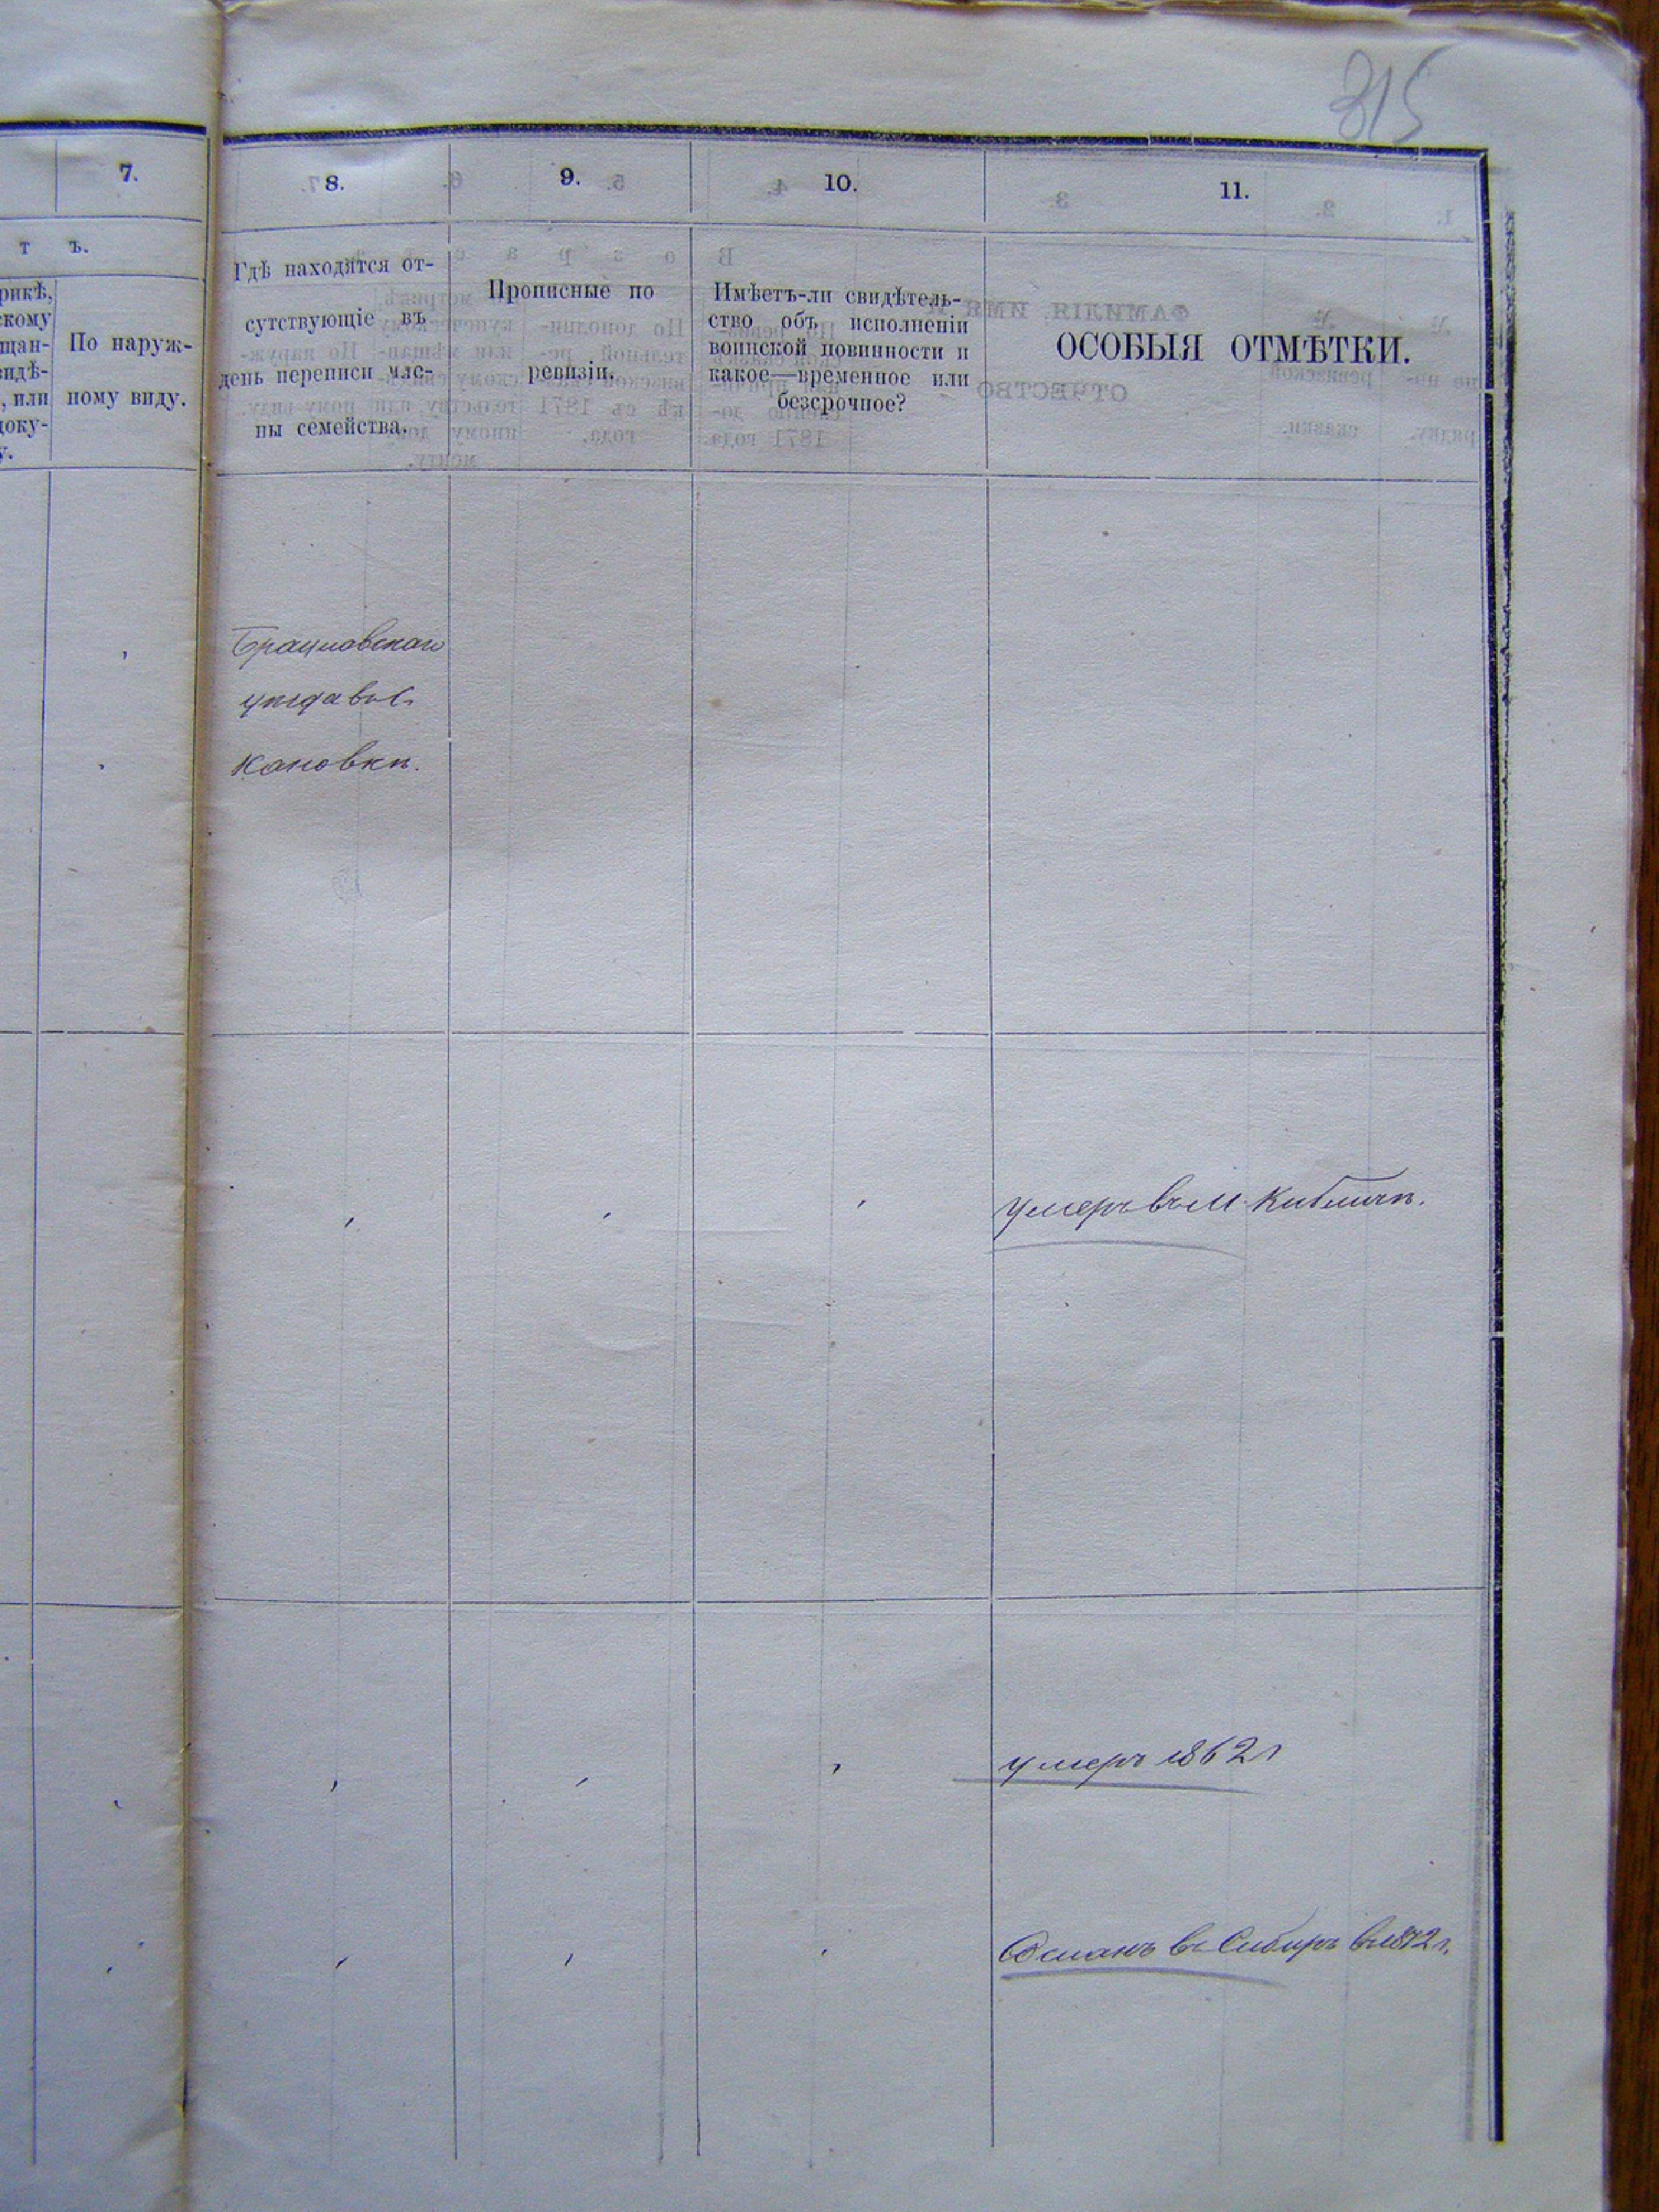 315
7.
8.
9.
10.
11.
т ъ.
рикѣ,
скому
щан-
видѣ-
, или
доку-
у.
По наруж-
ному виду.
Гдѣ находятся от-
сутствующіе въ
день переписи чле-
ны семейства.
Прописные по
ревизіи.
Имѣетъ-ли свидѣтель-
ство объ исполненіи
воинской повинности и
какое—временное или
безсрочное?
ОСОБЫЯ ОТМѢТКИ.
Брацлавскаго
уѣзда въ с.
Кановкѣ.
умеръ въ м. Кибличѣ.
умеръ 1862 г
Сосланъ въ Сибирь в 1872 г.